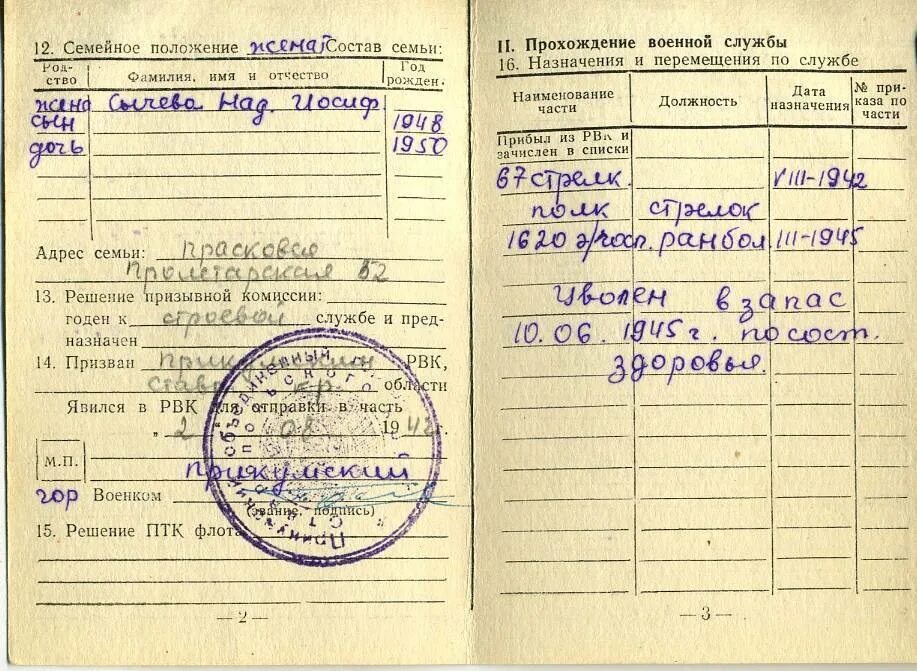 12. Семейное положение женат Состав семьи:
Родство Фамилия, имя и отчество Год рожден.
жена Сычева Над. Иосиф
сын 1948
дочь 1950
Адрес семьи: Прасковея
Пролетарская 52
13. Решение призывной комиссии:
годен к строевой службе и пред-
назначен
14. Призван РВК,
области
Явился в РВК для отправки в часть
„ 2 08 1942 г.
М.П. Прикумский
гор Военком
(звание, подпись)
15. Решение ПТК флота
— 2 —
II. Прохождение военной службы
16. Назначения и перемещения по службе
Наименование части Должность Дата назначения № приказа по части
Прибыл из РВК и
зачислен в списки
67 стрелк. VIII-1942
полк стрелок
1620 э/госп. ранбол. III-1945
Уволен в запас
10.06.1945 г. по сост.
здоровья.
— 3 —